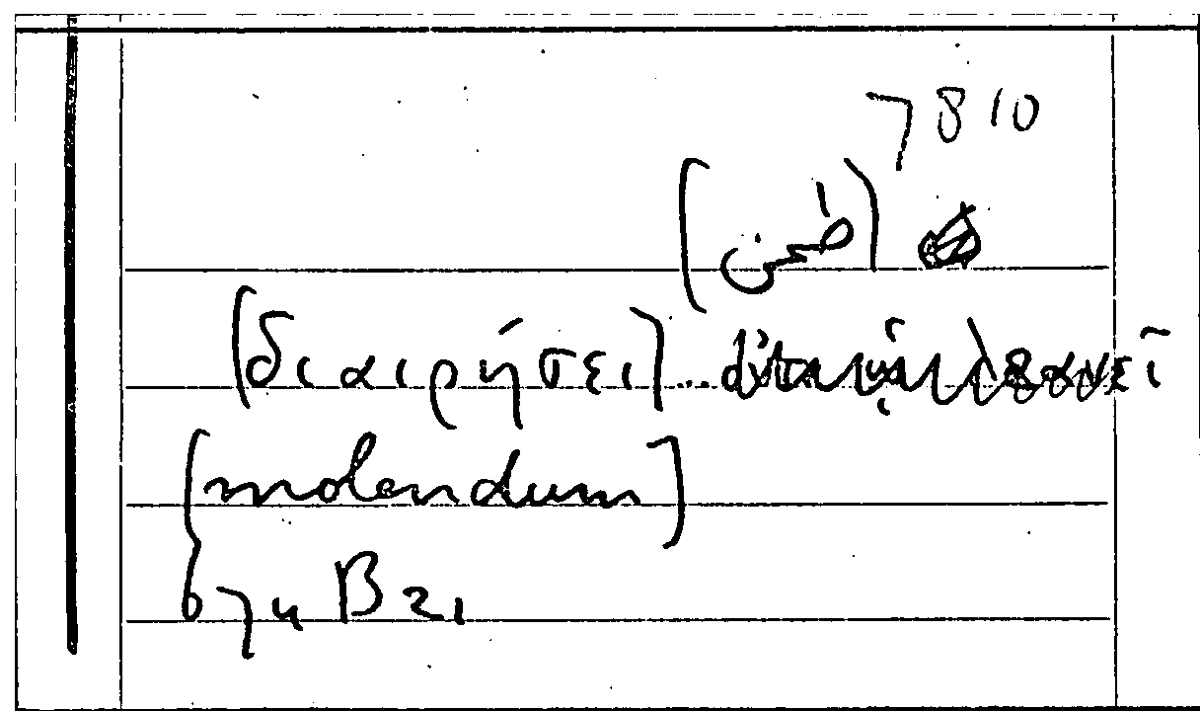 7810
(طحن)
(διαιρήσει) .. λεανεῖ
[molendum]
674 B 21